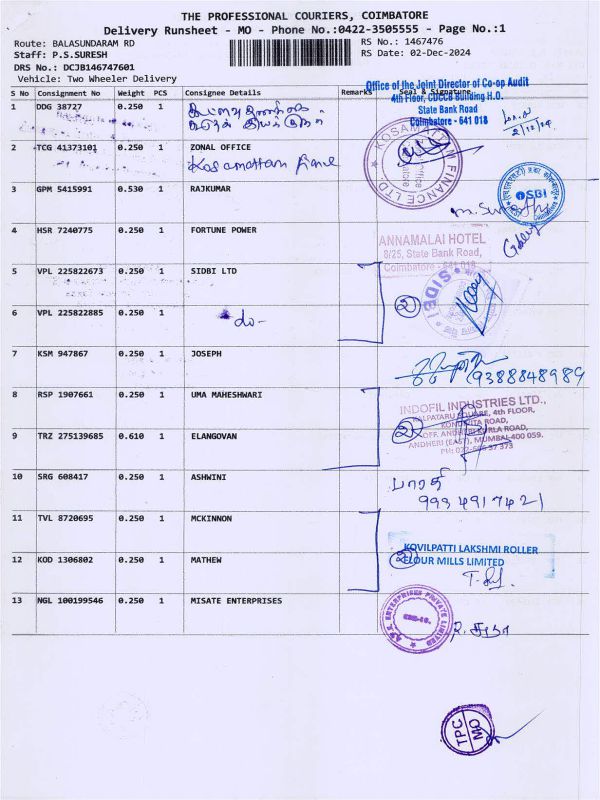 THE PROFESSIONAL COURIERS, COIMBATORE
Delivery Runsheet - MO - Phone No.:0422-3505555 - Page No.:1
Route: BALASUNDARAM RD
RS No.: 1467476
Staff: P.S.SURESH
RS Date: 02-Dec-2024
DRS No.: DCJB146747601
Vehicle: Two Wheeler Delivery
S No Consignment No Weight PCS Consignee Details Remarks Seal & Signature
Office of the Joint Director of Co-op Audit
4th Floor, CDCCB Building H.O.
State Bank Road
Coimbatore - 641 018
1 DDG 38727 0.250 1
2/12/24
2 TCG 41373101 0.250 1 ZONAL OFFICE
Kosamattam
KOSAMATTAM FINANCE LTD
3 GPM 5415991 0.530 1 RAJKUMAR
SBI
4 HSR 7240775 0.250 1 FORTUNE POWER
ANNAMALAI HOTEL
8/25, State Bank Road,
Coimbatore - 641 018
5 VPL 225822673 0.250 1 SIDBI LTD
2
SIDBI
6 VPL 225822885 0.250 1 -do-
7 KSM 947867 0.250 1 JOSEPH
9388848989
8 RSP 1907661 0.250 1 UMA MAHESHWARI
INDOFIL INDUSTRIES LTD.,
KALPATARU SQUARE, 4th FLOOR,
KONDIVITA ROAD,
OFF. ANDHERI KURLA ROAD,
ANDHERI (EAST), MUMBAI-400 059.
2
9 TRZ 275139685 0.610 1 ELANGOVAN
10 SRG 608417 0.250 1 ASHWINI
பாரதி
11 TVL 8720695 0.250 1 MCKINNON
KOVILPATTI LAKSHMI ROLLER
FLOUR MILLS LIMITED
2
12 KOD 1306802 0.250 1 MATHEW
13 NGL 100199546 0.250 1 MISATE ENTERPRISES
ENTERPRISES PRIVATE LIMITED
R. சுதா
TPC
MO